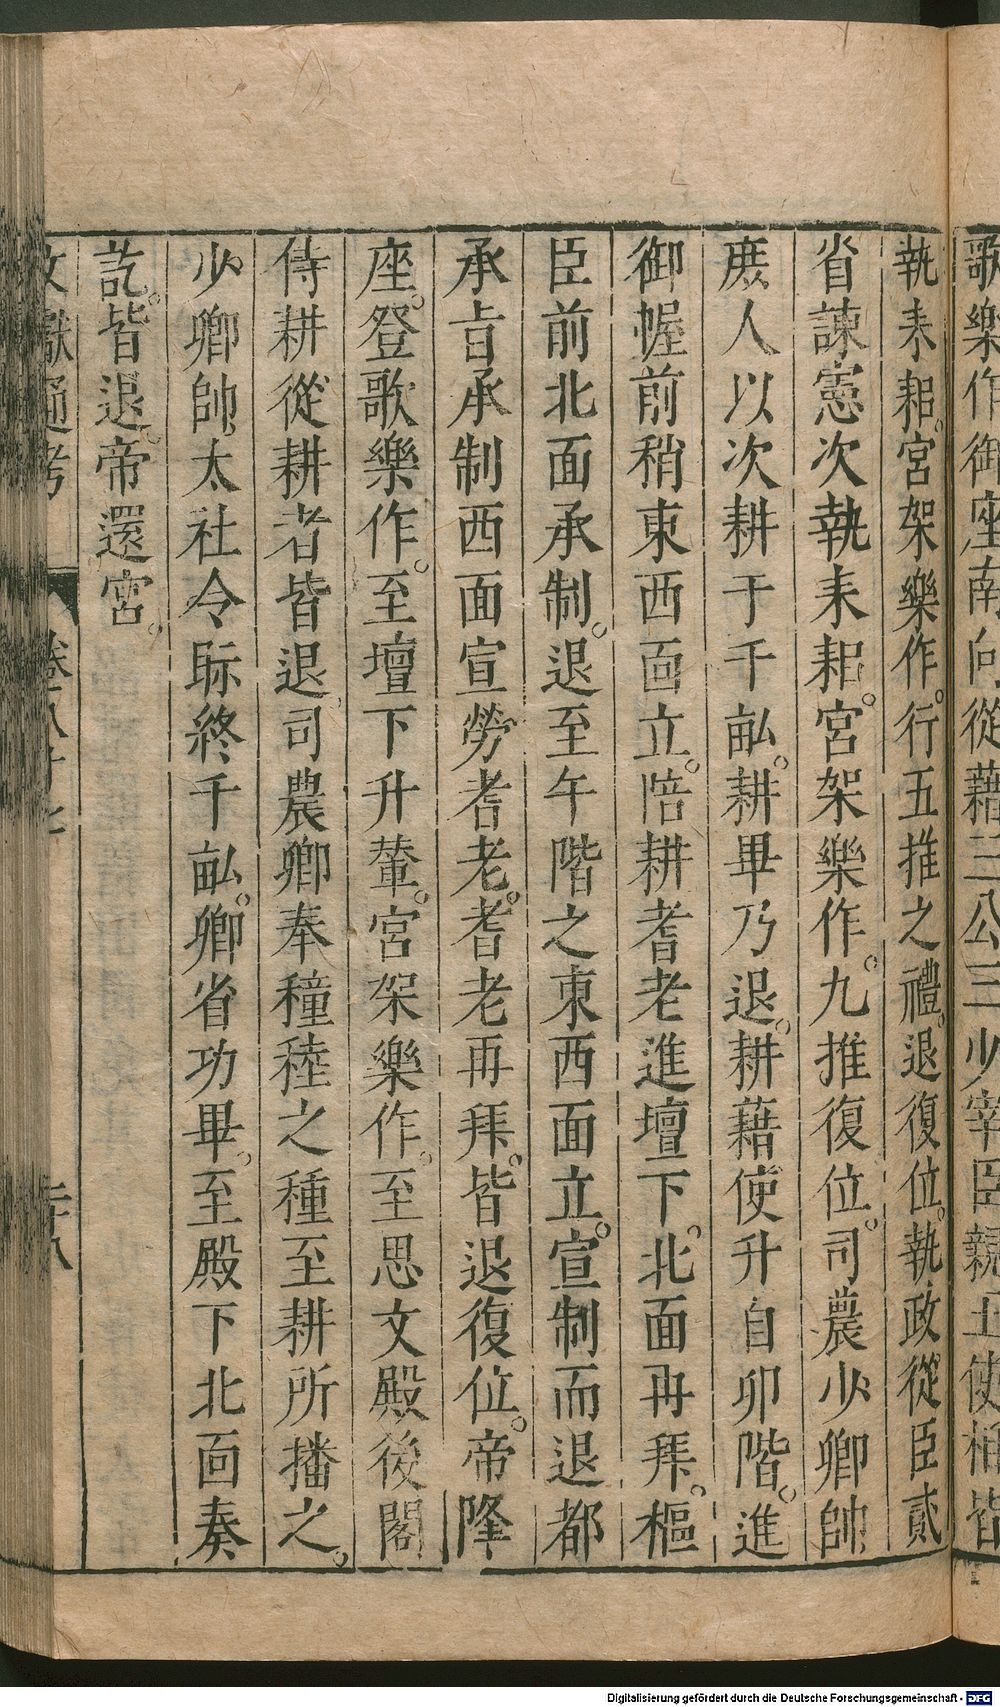 歌樂作御座南向從藉三公三少宰臣親王使相皆
執耒耜宮架樂作行五推之禮退復位執政從臣貳
省諫憲次執耒耜宮架樂作九推復位司農少卿帥
庶人以次耕于千畝耕畢乃退耕藉使升自卯階進
御幄前稍東西面立陪耕耆老進壇下北面再拜樞
臣前北面承制退至午階之東西面立宣制而退都
承旨承制西面宣勞耆老耆老再拜皆退復位帝降
座登歌樂作至壇下升輦宮架樂作至思文殿後閣
侍耕從耕者皆退司農卿奉穜稑之種至耕所播之
少卿帥太社令眎終千畝卿省功畢至殿下北面奏
訖皆退帝還宮
文獻通考 卷八十七 二十八
Digitalisierung gefördert durch die Deutsche Forschungsgemeinschaft - DFG